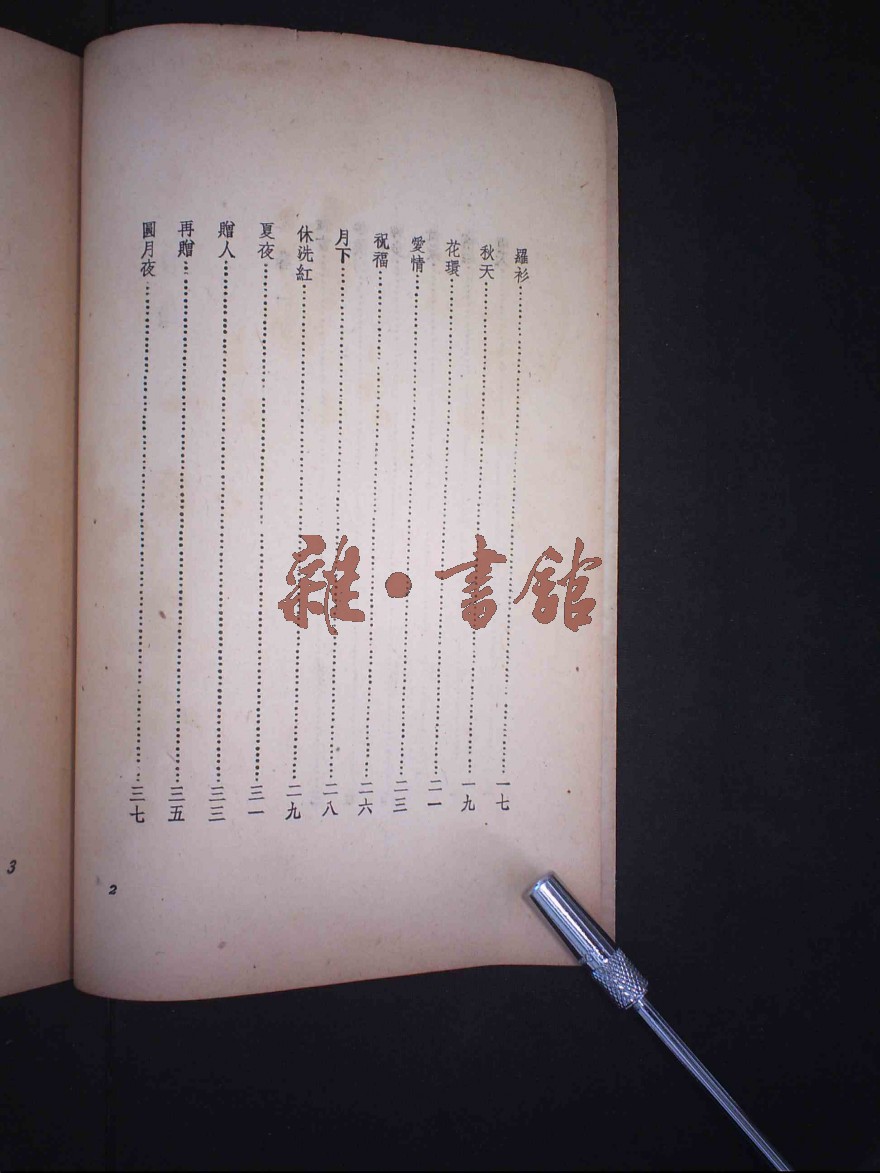 羅衫…………一七
秋天…………一九
花環…………二一
愛情…………二三
祝福…………二六
月下…………二八
休洗紅…………二九
夏夜…………三一
贈人…………三三
再贈…………三五
圓月夜…………三七
2
3
雜·書館